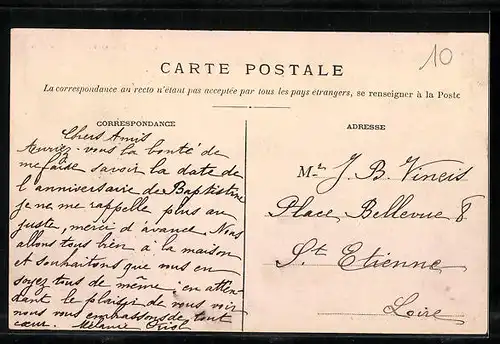 10
CARTE POSTALE
La correspondance au recto n'étant pas acceptée par tous les pays étrangers, se renseigner à la Poste
CORRESPONDANCE
Chers Amis
Auriez-vous la bonté de
me faire savoir la date de
l'anniversaire de Baptistine
je ne me rappelle plus au
juste, merci d'avance. Nous
allons tous bien à la maison
et souhaitons que vous en
soyez tous de même; en atten-
dant le plaisir de vous voir
nous vous embrassons de tout
cœur. Mélanie
ADRESSE
Mr J. B. Vineis
Place Bellevue 8
St Etienne
Loire